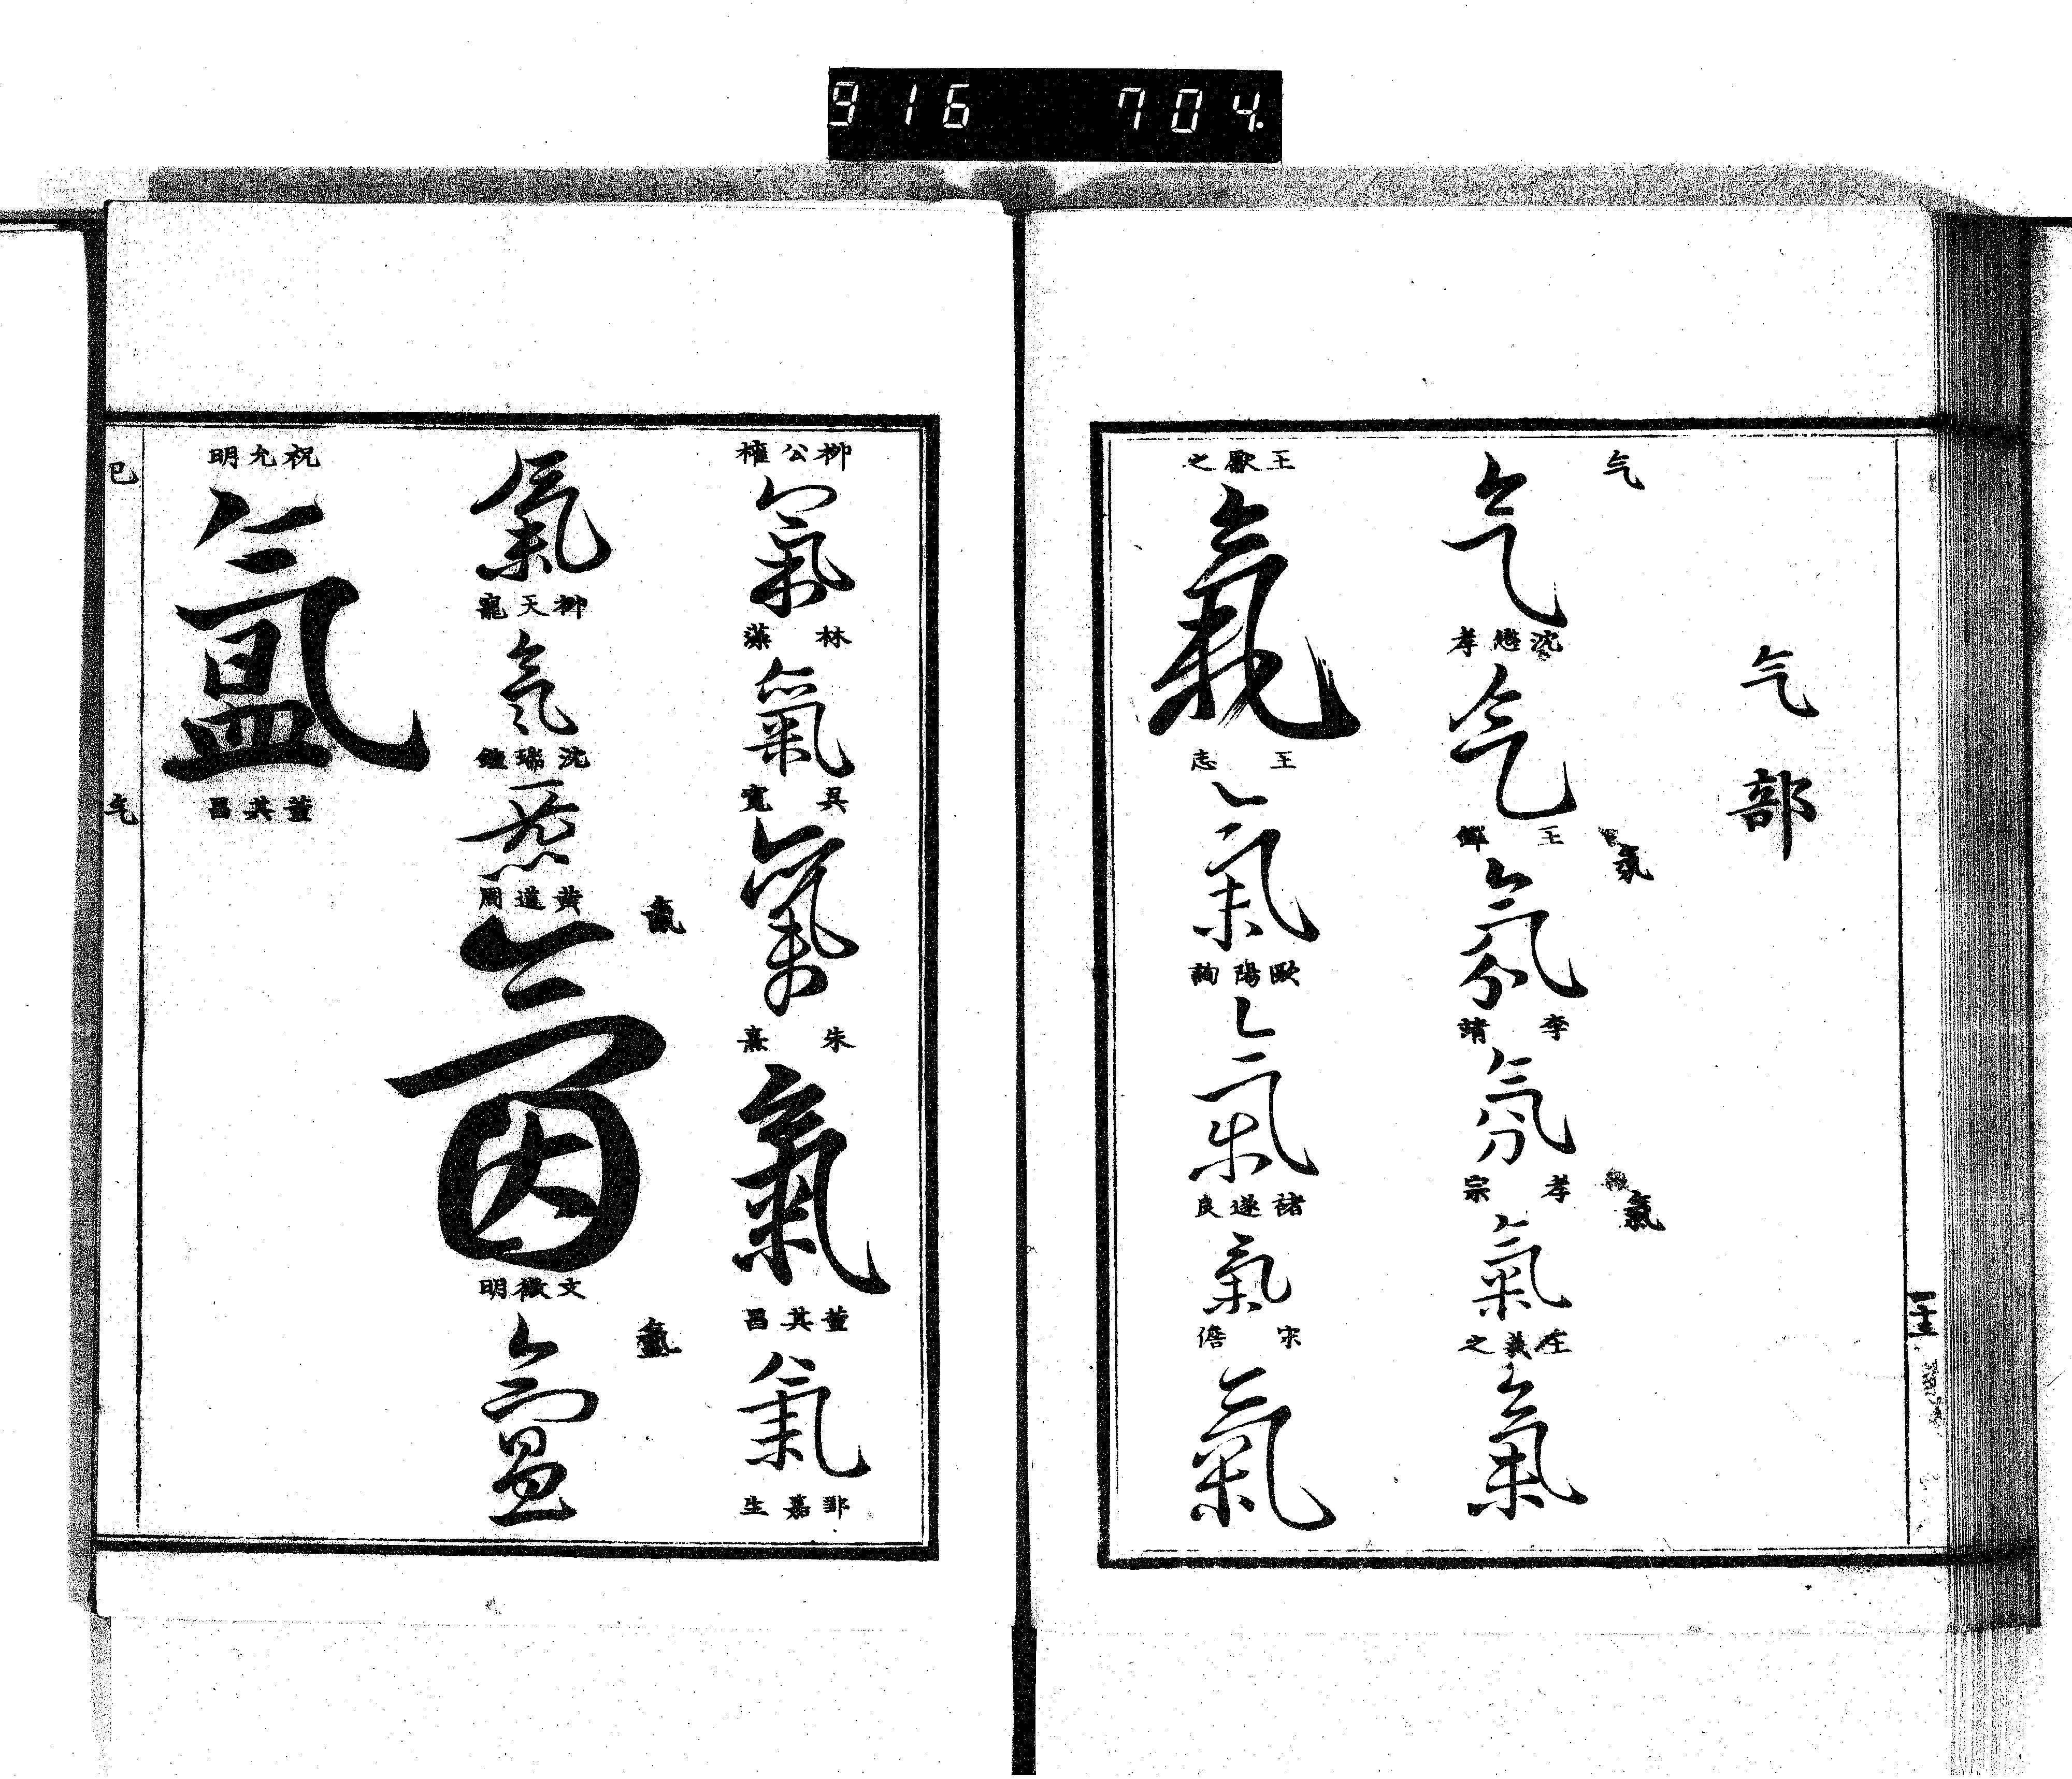 916 704.
气部
气
气
沈懋孝
气
王鐸
氛
氛
李靖
氛
孝宗
氣
氣
王羲之
氣
王獻之
氣
王志
氣
歐陽詢
氣
褚遂良
氣
宋儋
氣
柳公權
氣
林藻
氣
吳寬
氣
朱熹
氣
董其昌
氣
鄒嘉生
氣
柳天寵
氣
沈瑞鍾
炁
黃道周
氤
氤
文徵明
氳
氳
祝允明
氳
董其昌
巳
气